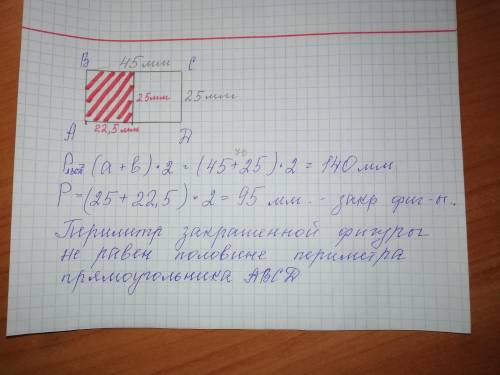 B 45мм C
25мм 25мм
A 22,5мм D
70
Pпост = (a + b) · 2 = (45 + 25) · 2 = 140 мм
P = (25 + 22,5) · 2 = 95 мм. - закр фиг-ы..
Периметр закрашенной фигуры
не равен половине периметра
прямоугольника ABCD